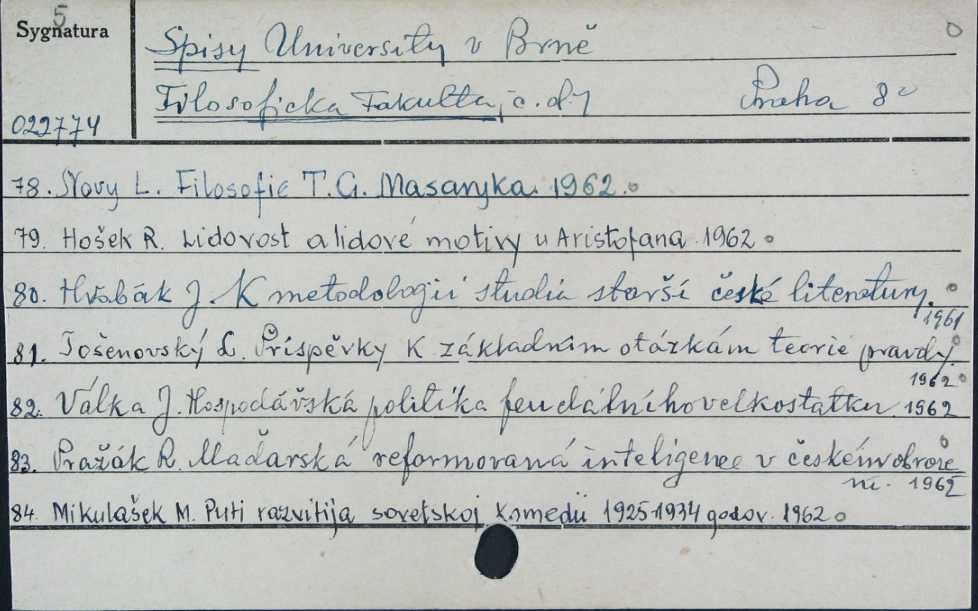 5
Sygnatura
Spisy University v Brně
Filosoficka Fakulta, č.
Praha 8°
022774
78. Novy L. Filosofie T. G. Masaryka. 1962.
79. Hošek R. Lidovost a lidové motivy u Aristofana 1962
80. Hrabák J. K metodologii studia starší české literatury.
1961
81. Tošenovský L. Príspěvky k základnim otázkám teorie pravdy.
1962
82. Válka J. Hospodářská politika feudálního velkostatku 1962
83. Pražák R. Maďarská reformovaná inteligence v českém obroze
ni. 1962
84. Mikulašek M. Puti razvitija sovetskoj komedii 1925-1934 godov. 1962